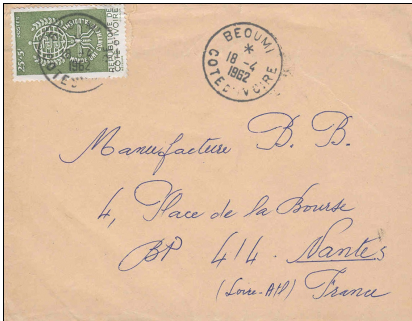 REPUBLIQUE DE
COTE D'IVOIRE
25F+5F
POSTES
1962
BEOUMI
18-4
1962
COTE D'IVOIRE
Manufacture B. B.
4, Place de la Bourse
BP 414. Nantes
(Loire-Atl)
France